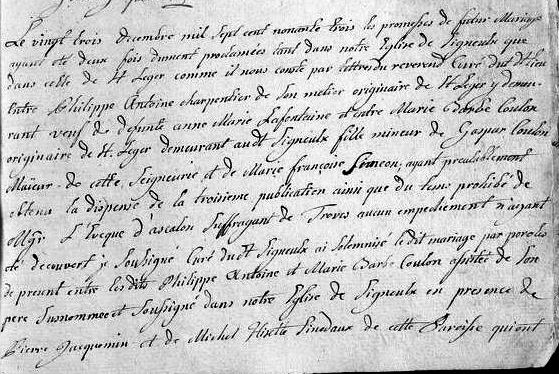 Le vingt trois decembre mil sept cent nonante trois les promesses de futur Mariage
ayant été deux fois dument proclamées tant dans notre Eglise de Signeulx que
dans celle de St Leger comme il nous conste par lettres du reverend Curé dudt lieu
entre Philippe Antoine charpentier de son metier originaire de St Leger y demeu-
rant veuf de defunte anne Marie Lafontaine et entre Marie Barbe Coulon
originaire de St. Leger demeurant audt Signeulx fille mineur de Gaspar Coulon
Maïeur de cette Seigneurie et de Marie françoise Simeon, ayant prealablement
obtenu la dispense de la troisieme publication ainsi que du tems prohibé de
Mgr L'Eveque d'ascalon Suffragant de Treves aucun empechement n'ayant
eté decouvert je soussigné Curé dudt Signeulx ai solemnisé le dit mariage par paroles
de present entre lesdits Philippe Antoine et Marie Barbe Coulon assistée de son
pere Surnommée et Soussigné dans notre Eglise de Signeulx en presence de
Pierre Jacquemin et de Michel Sinodaux de cette Paroisse qui ont